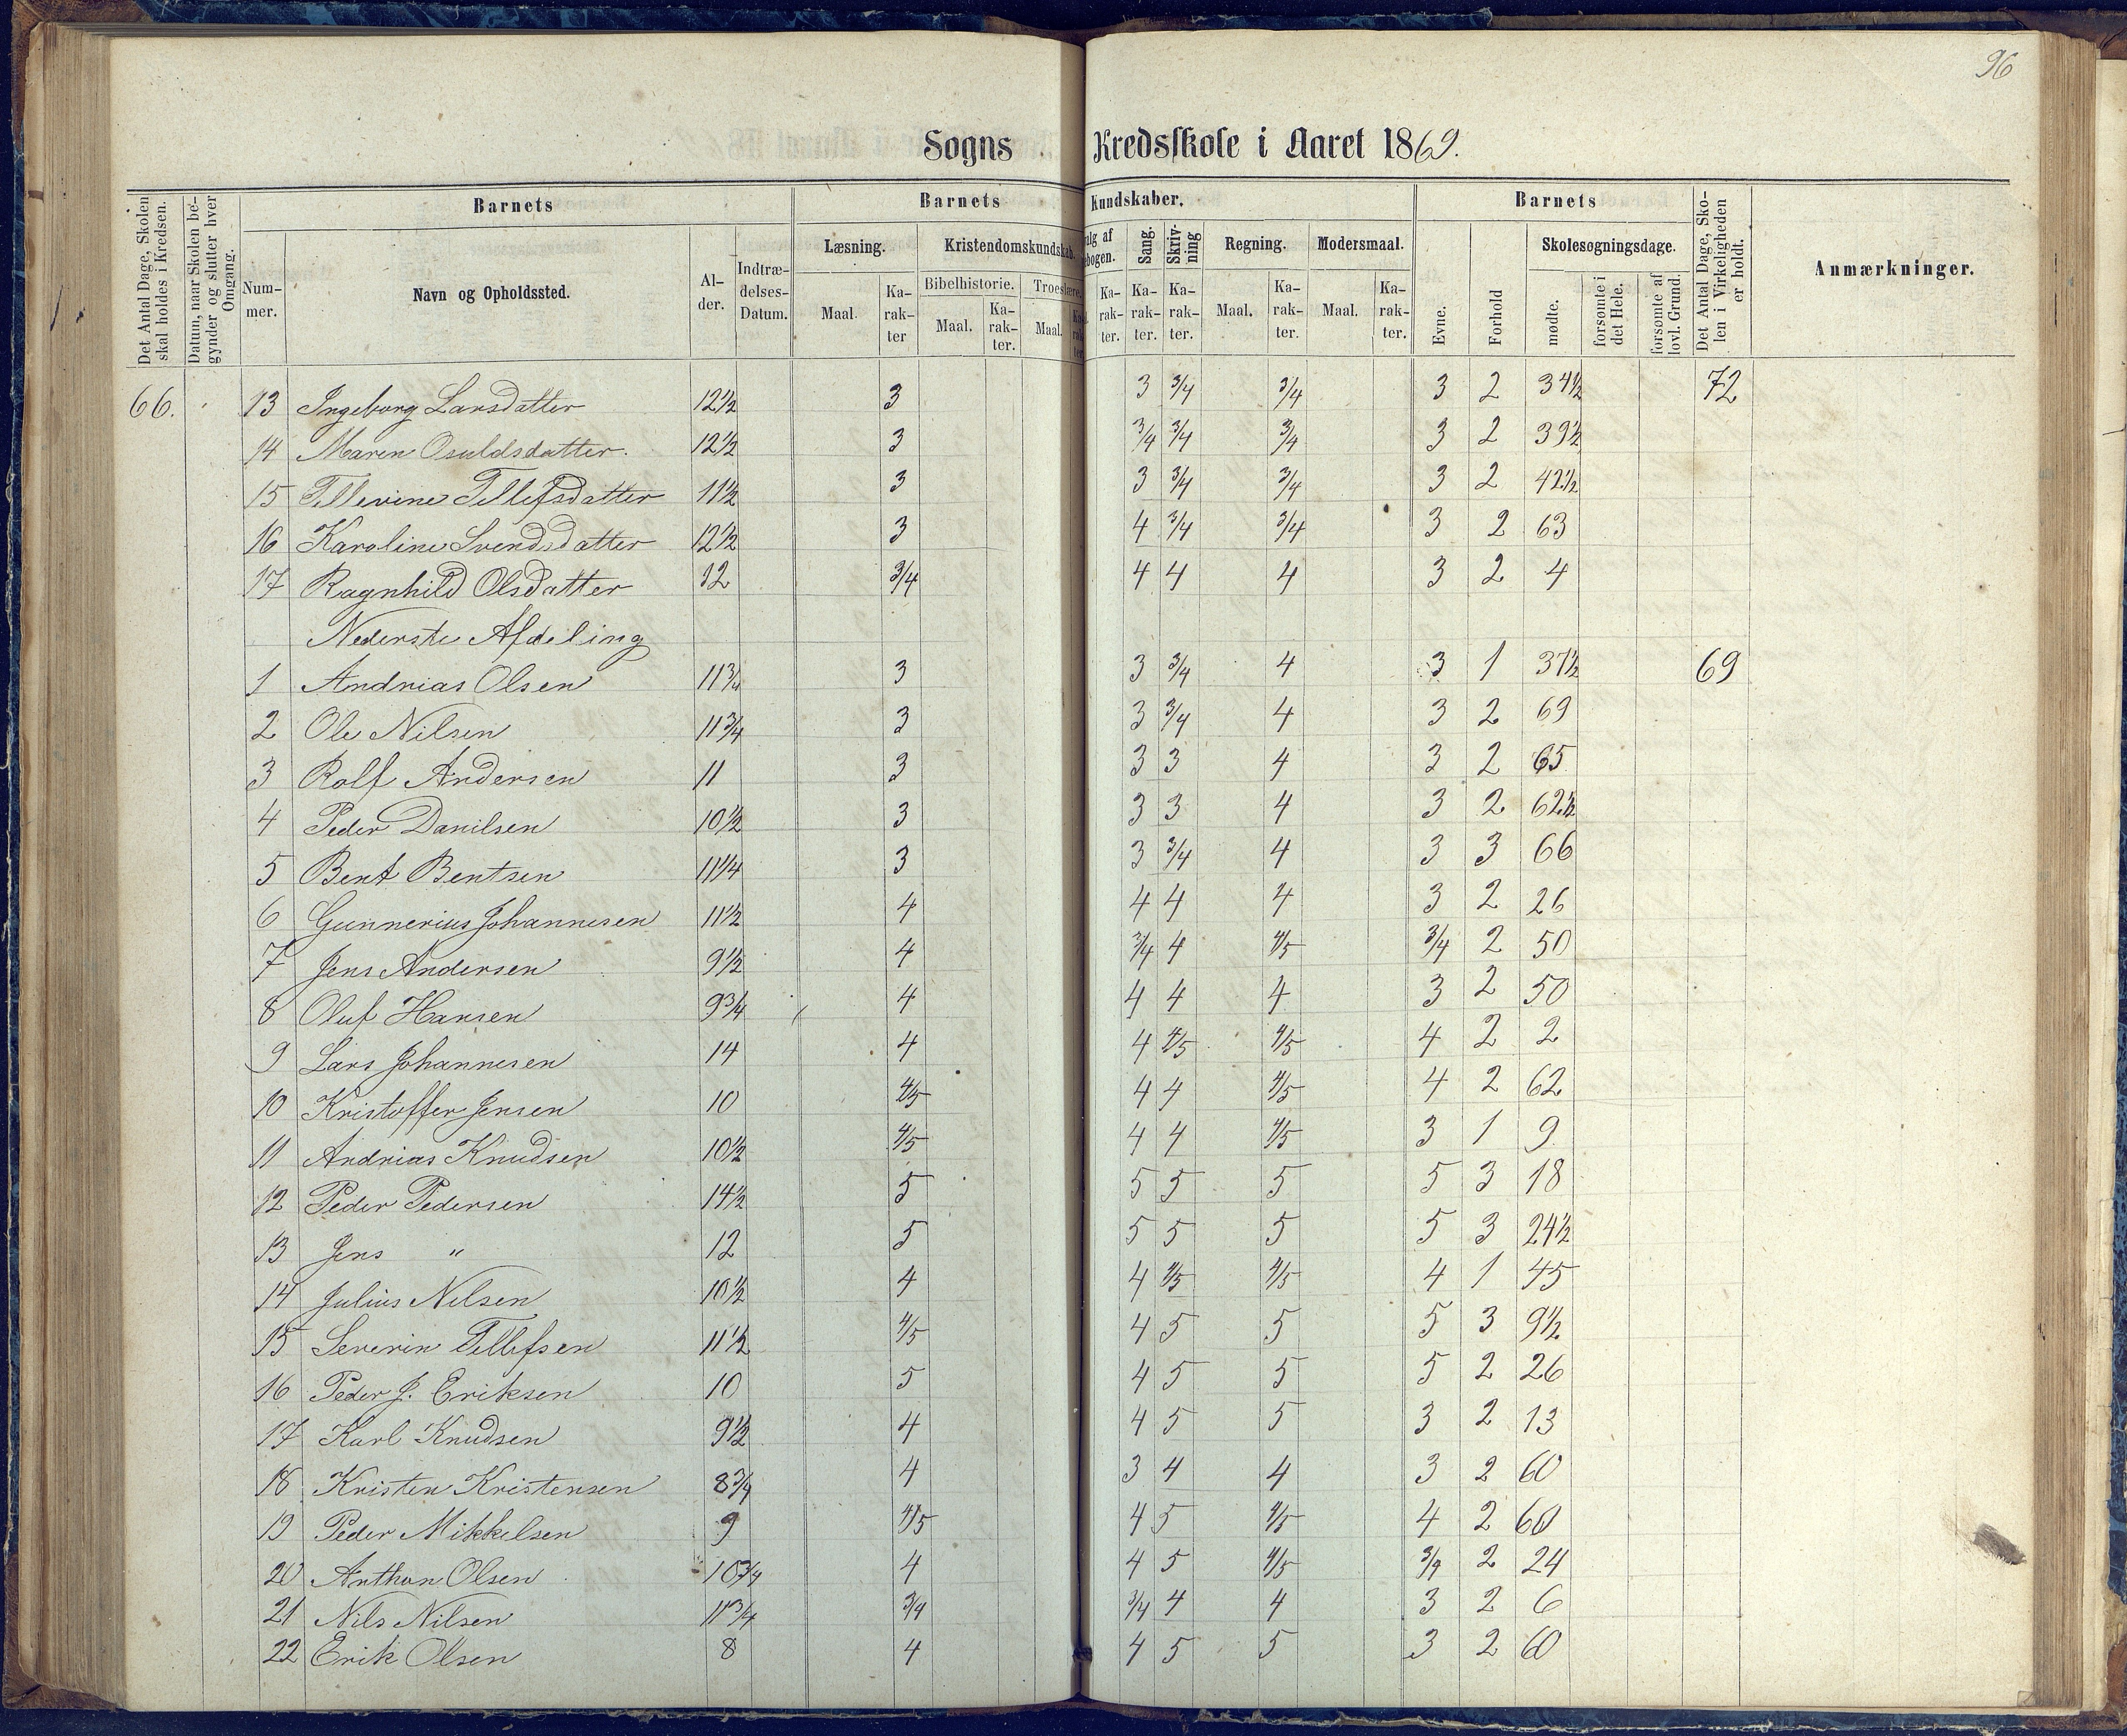 96
Sogns Kredsskole i Aaret 1869.
Det Antal Dage, Skolen skal holdes i Kredsen.
Datum, naar Skolen begynder og slutter hver Omgang.
Barnets
Nummer.
Navn og Opholdssted.
Alder.
Indtrædelses-Datum.
Barnets Kundskaber.
Læsning.
Maal.
Karakter
Kristendomskundskab.
Bibelhistorie.
Maal.
Karakter.
Troeslære.
Maal.
alg af
ebogen.
Karakter.
Sang.
Karakter.
Skrivning
Karakter.
Regning.
Maal.
Karakter.
Modersmaal.
Maal.
Karakter.
Barnets
Evne.
Forhold
Skolesøgningsdage.
mødte.
forsømte i det Hele.
forsømte af lovl. Grund.
Det Antal Dage, Skolen i Virkeligheden er holdt.
Anmærkninger.
66. 13 Ingeborg Larsdatter 12½ 3 3 3/4 3/4 3 2 34½ 72
14 Maren Osuldsdatter. 12½ 3 3/4 3/4 3/4 3 2 39½
15 Tellevine Tellefsdatter 11½ 3 3 3/4 3/4 3 2 42½
16 Karoline Svendsdatter 12½ 3 4 3/4 3/4 3 2 63
17 Ragnhild Olsdatter 12 3/4 4 4 4 3 2 4
Nederste Afdeling
1 Andrias Olsen 11¾ 3 3 3/4 4 3 1 37½ 69
2 Ole Nilsen 11¾ 3 3 3/4 4 3 2 69
3 Rolf Andersen 11 3 3 3 4 3 2 65
4 Peder Danilsen 10½ 3 3 3 4 3 2 62½
5 Bent Bentsen 11¼ 3 3 3/4 4 3 3 66
6 Gunnerius Johannesen 11½ 4 4 4 4 3 2 26
7 Jens Andersen 9½ 4 3/4 4 4/5 3/4 2 50
8 Oluf Hansen 9¾ 4 4 4 4 3 2 50
9 Lars Johannesen 14 4 4 4/5 4/5 4 2 2
10 Kristoffer Jensen 10 4/5 4 4 4/5 4 2 62
11 Andrias Knudsen 10½ 4/5 4 4 4/5 3 1 9
12 Peder Pedersen 14½ 5 5 5 5 5 3 18
13 Jens " 12 5 5 5 5 5 3 24½
14 Julius Nilsen 10½ 4 4 4/5 4/5 4 1 45
15 Severin Tellefsen 11½ 4/5 4 5 5 5 3 9½
16 Peder J. Eriksen 10 5 4 5 5 5 2 26
17 Karl Knudsen 9½ 4 4 5 5 3 2 13
18 Kristen Kristensen 8¾ 4 3 4 4 3 2 60
19 Peder Mikkelsen 9 4/5 4 5 4/5 4 2 60
20 Anthon Olsen 10¾ 4 4 5 4/5 3/4 2 24
21 Nils Nilsen 11¾ 3/4 3/4 4 4 3 2 6
22 Erik Olsen 8 4 4 5 5 3 2 60